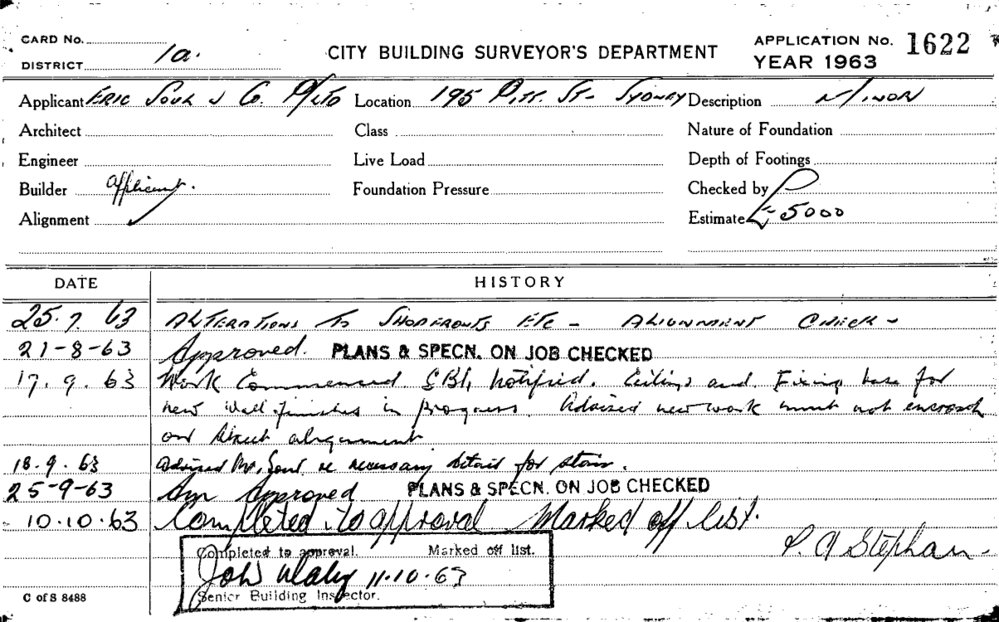 CARD No.
DISTRICT 1a.
CITY BUILDING SURVEYOR'S DEPARTMENT
APPLICATION No. 1622
YEAR 1963
Applicant ERIC & Co. P/LTD Location 195 PITT. ST- SYDNEY Description MINOR
Architect Class Nature of Foundation
Engineer Live Load Depth of Footings
Builder applicant. Foundation Pressure Checked by
Alignment Estimate £5000
DATE HISTORY
25.7.63 ALTERATIONS TO SHOPFRONTS ETC - ALIGNMENT CHECK -
21-8-63 Approved. PLANS & SPECN. ON JOB CHECKED
17.9.63 Work Commenced notified. Ceilings and Fixing base for
new wall finishes in progress. Advised new work must not encroach
on street alignment
18.9.63 Advised Mr. re necessary detail for stair.
25-9-63 Am Approved PLANS & SPECN. ON JOB CHECKED
10.10.63 Completed to approval Marked off list.
Completed to approval. Marked off list.
11.10.63
Senior Building Inspector.
C of S 8488